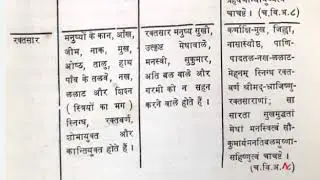 चाचष्टे । (च.वि.अ.८)
रक्तसार
मनुष्यों के कान, आँख,
जीभ, नाक, मुख,
ओष्ठ, तालु, हाथ
पाँव के तलवे, नख,
ललाट और शिश्न
(स्त्रियों का भग)
स्निग्ध, रक्तवर्ण,
शोभायुक्त और
कान्तियुक्त होते हैं ।
रक्तसार मनुष्य सुखी,
उत्कृष्ट मेधावाले,
मनस्वी, सुकुमार,
अति बल वाले और
गरमी को न सहन
करने वाले होते हैं ।
कर्णाक्षि-मुख, जिह्वा,
नासास्योष्ठ, पाणि-
पादतल-नख-ललाट-
मेहनम् स्निग्ध रक्त-
वर्णं श्रीमद्-भ्राजिष्णु-
रक्तसाराणां; सा
सारता सुखमुद्धतां
मेधां मनस्वित्वं सौ-
कुमार्यमनतिबलमुष्णा-
सहिष्णुत्वं चाचष्टे ।
(च.वि.अ.८)